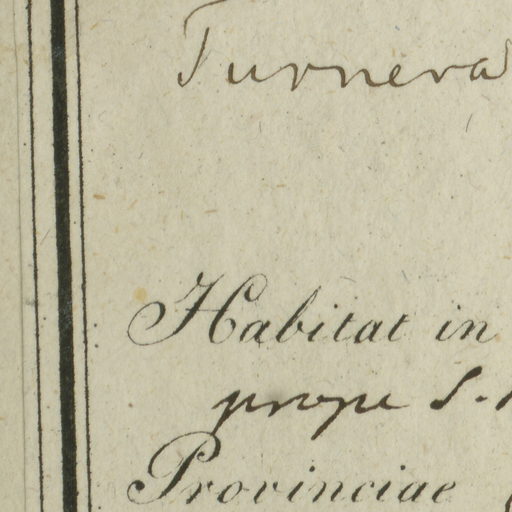 Turnera
Habitat in
prope S.
Provinciae